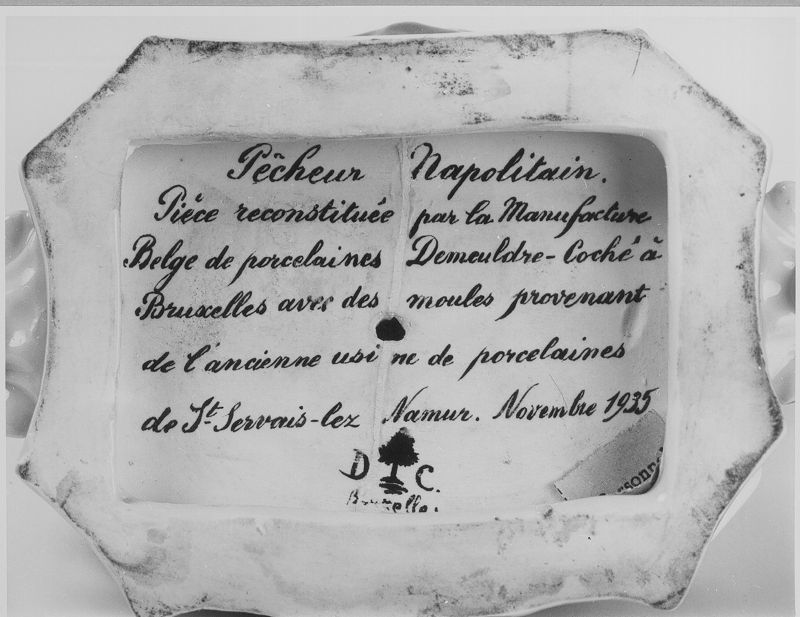 Pêcheur Napolitain.
Pièce reconstituée par la Manufacture
Belge de porcelaines Demeuldre-Coché à
Bruxelles avec des moules provenant
de l'ancienne usine de porcelaines
de St. Servais-lez Namur. Novembre 1935
D C.